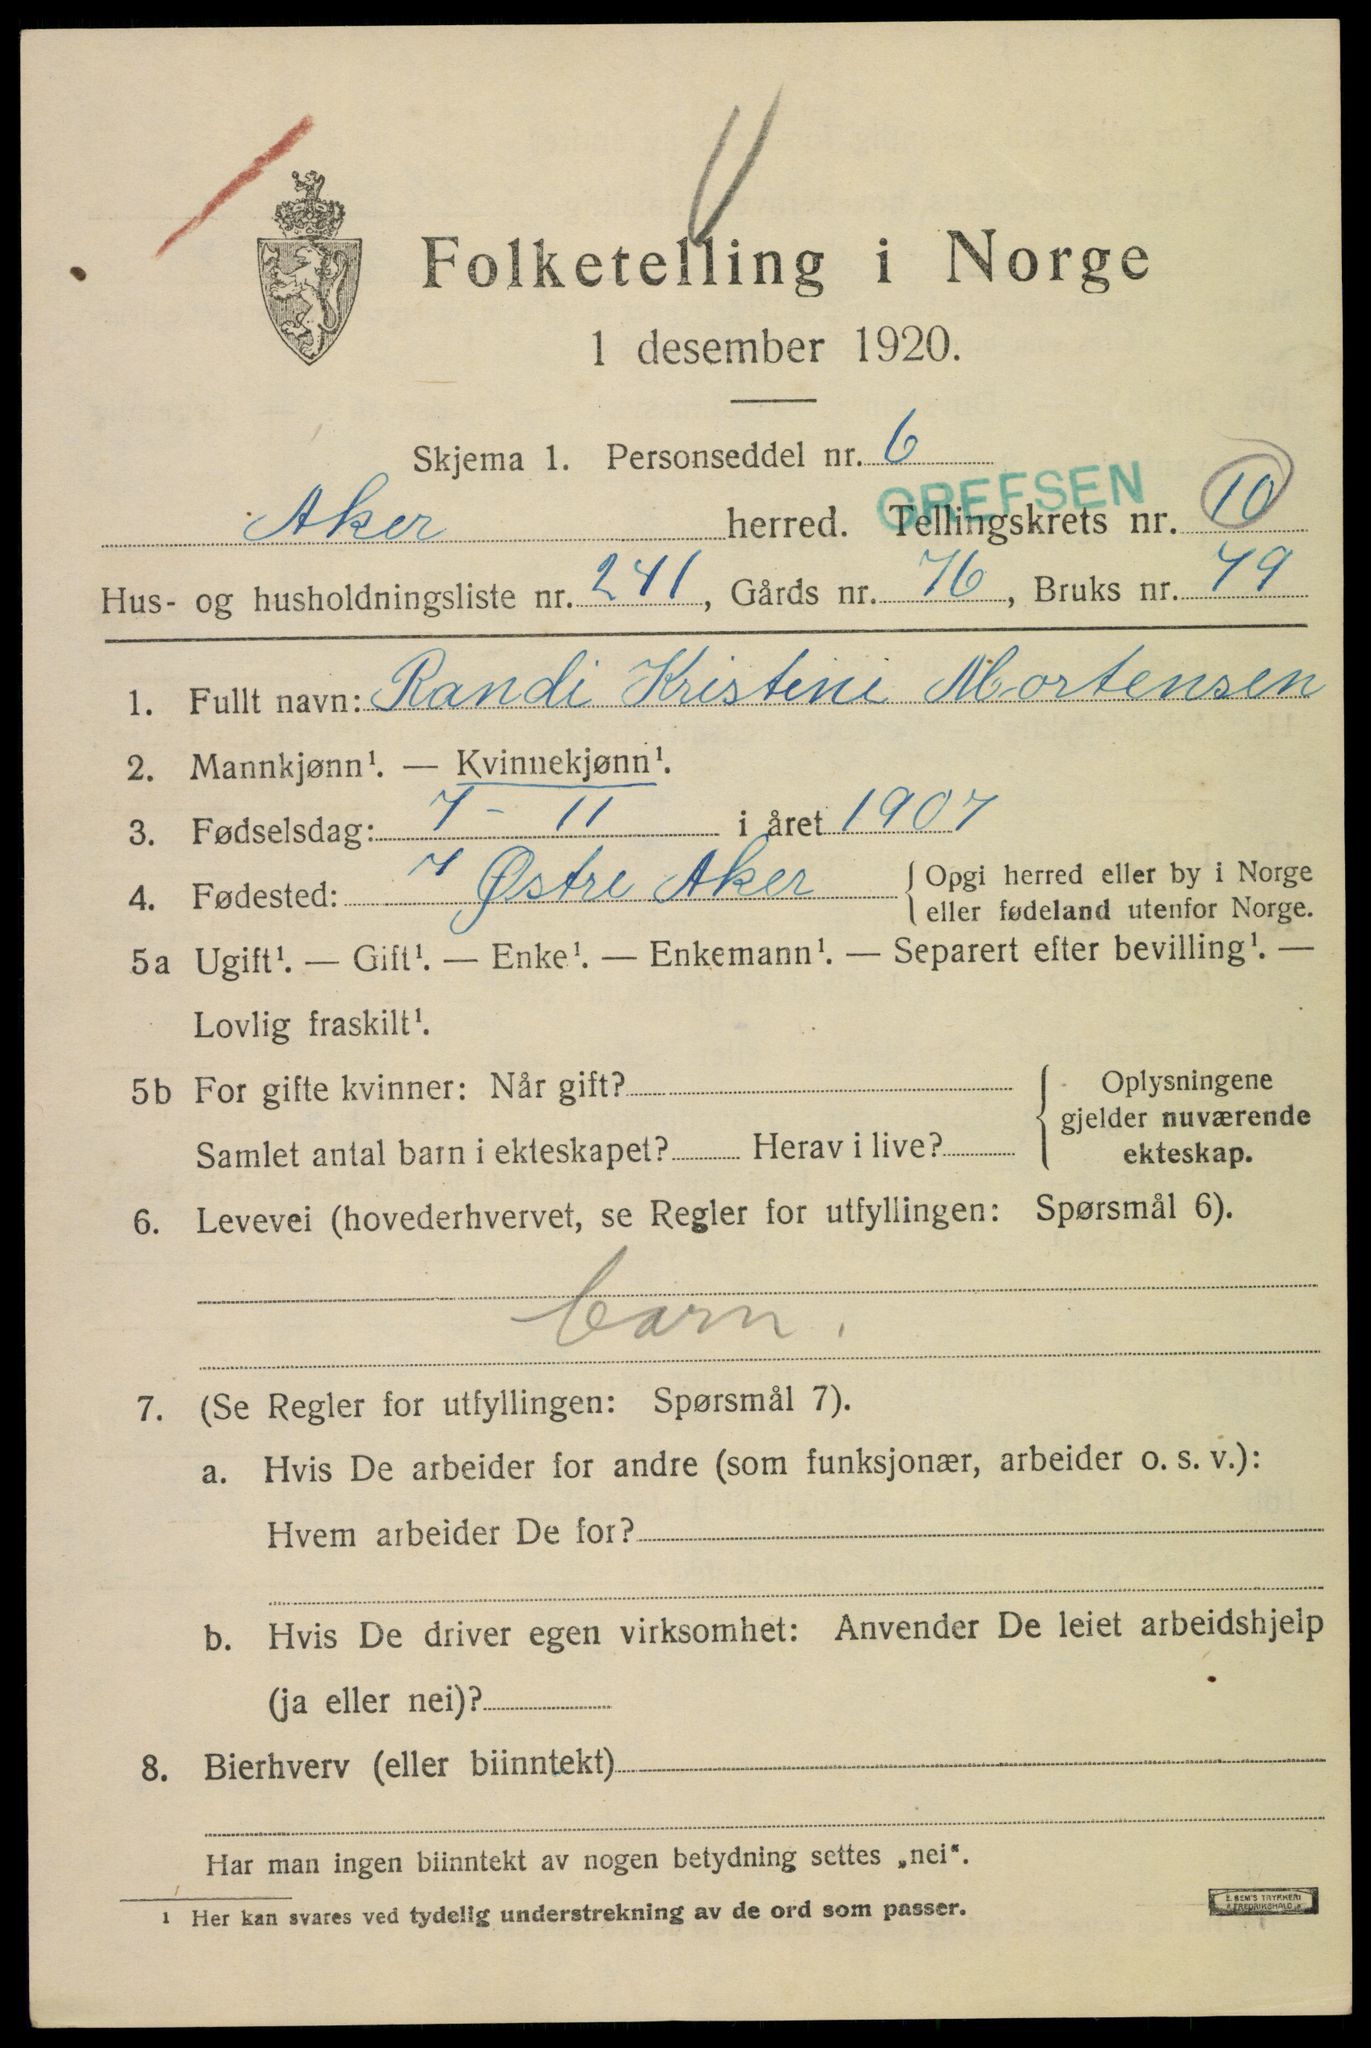 Folketelling i Norge
1 desember 1920.
Skjema 1. Personseddel nr. 6
GREFSEN
Aker herred. Tellingskrets nr. 10
Hus- og husholdningsliste nr. 241, Gårds nr. 76, Bruks nr. 79
1. Fullt navn: Randi Kristine Mortensen
2. Mannkjønn¹. — Kvinnekjønn¹.
3. Fødselsdag: 7 - 11 i året 1907
4. Fødested: Østre Aker { Opgi herred eller by i Norge
eller fødeland utenfor Norge.
5a Ugift¹. — Gift¹. — Enke¹. — Enkemann¹. — Separert efter bevilling¹. —
Lovlig fraskilt¹.
5b For gifte kvinner: Når gift?
Samlet antal barn i ekteskapet? Herav i live?
Oplysningene
gjelder nuværende
ekteskap.
6. Levevei (hovederhvervet, se Regler for utfyllingen: Spørsmål 6).
barn.
7. (Se Regler for utfyllingen: Spørsmål 7).
a. Hvis De arbeider for andre (som funksjonær, arbeider o. s. v.):
Hvem arbeider De for?
b. Hvis De driver egen virksomhet: Anvender De leiet arbeidshjelp
(ja eller nei)?
8. Bierhverv (eller biinntekt)
Har man ingen biinntekt av nogen betydning settes „nei".
¹ Her kan svares ved tydelig understrekning av de ord som passer.
E. SEM'S TRYKKERI
FREDRIKSHALD